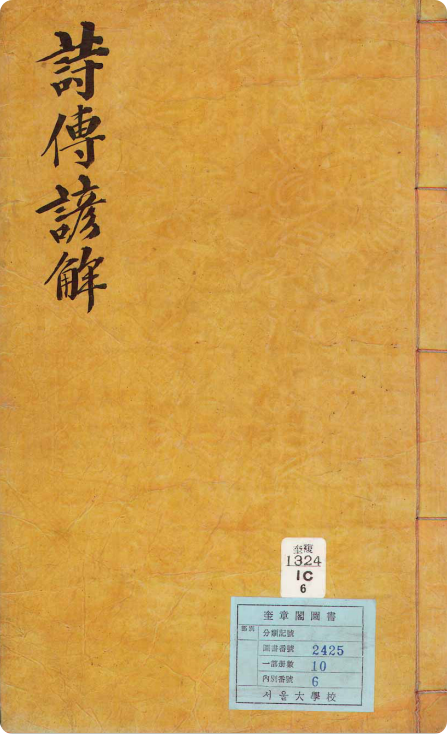 詩傳諺解
奎複
1324
1C
6
奎章閣圖書
分類記號
圖書番號 2425
一部冊數 10
內別番號 6
서울大學校